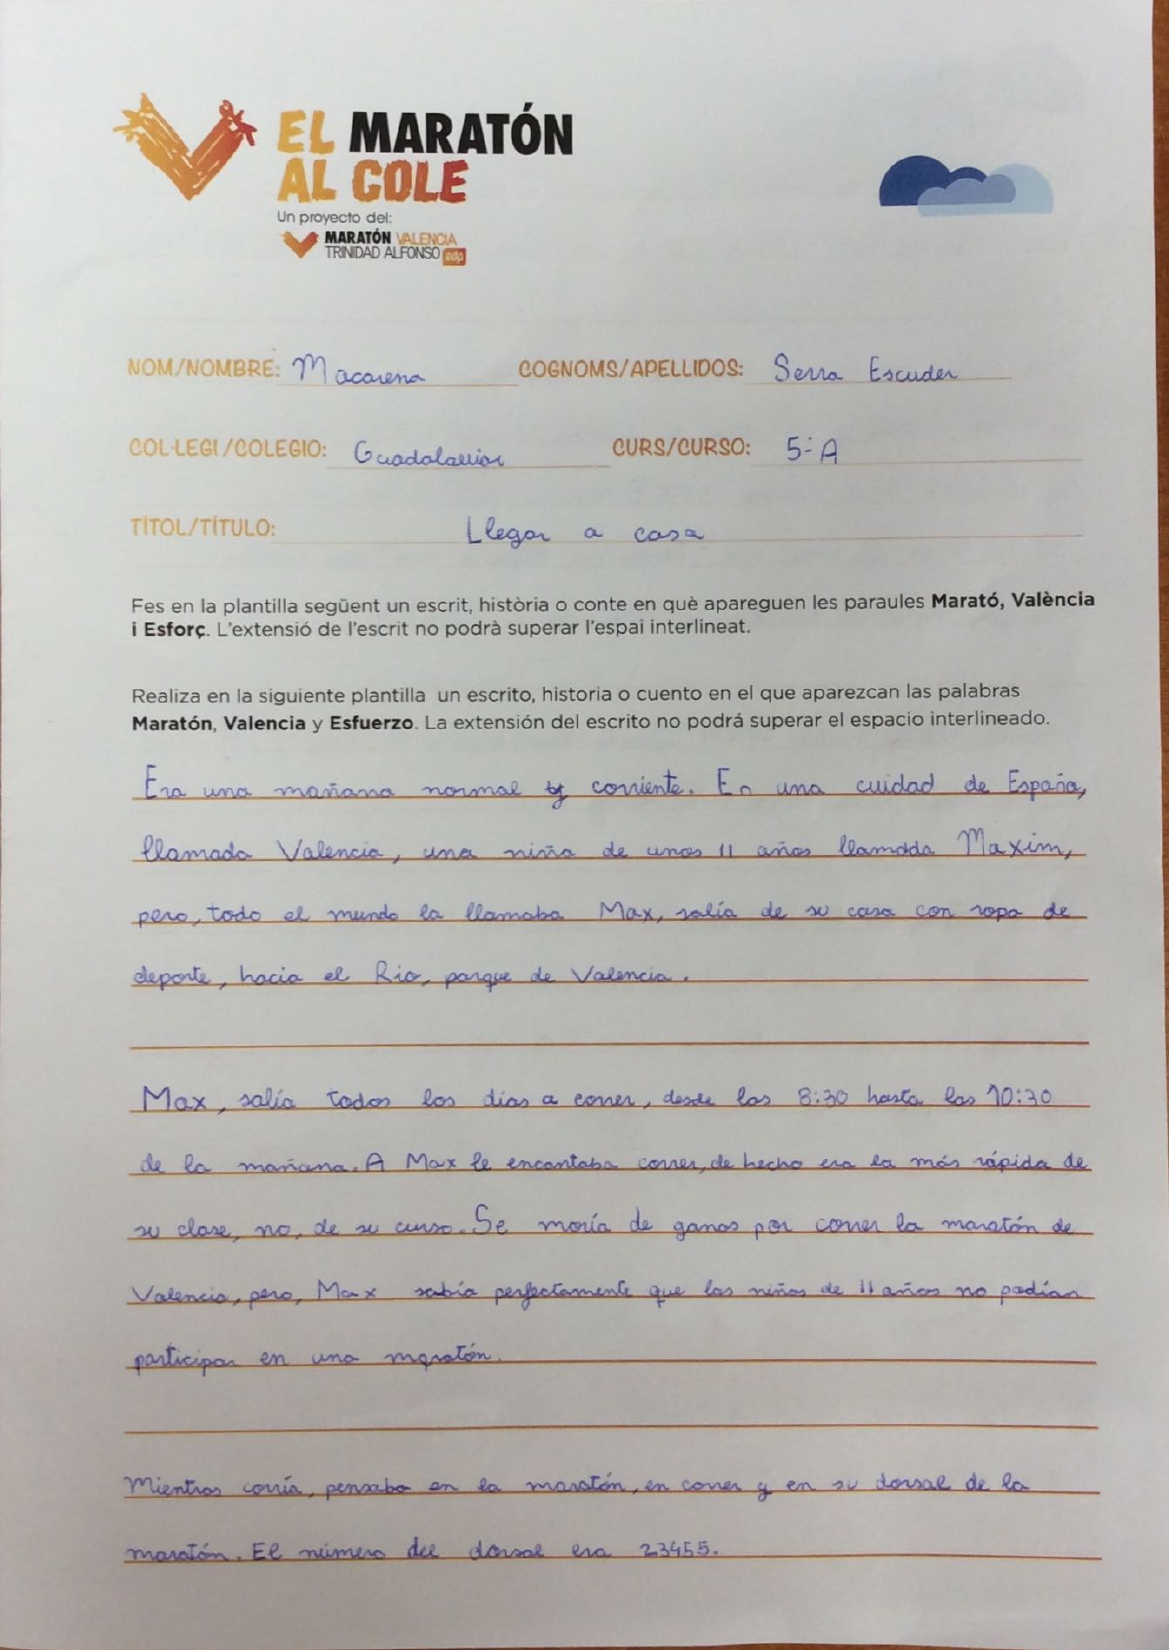 EL MARATÓN
AL COLE
Un proyecto del:
MARATÓN VALENCIA
TRINIDAD ALFONSO edp
NOM/NOMBRE: Macarena COGNOMS/APELLIDOS: Serra Escuder
COL·LEGI/COLEGIO: Guadalaviar CURS/CURSO: 5·A
TÍTOL/TÍTULO: Llegar a casa
Fes en la plantilla següent un escrit, història o conte en què apareguen les paraules Marató, València
i Esforç. L'extensió de l'escrit no podrà superar l'espai interlineat.
Realiza en la siguiente plantilla un escrito, historia o cuento en el que aparezcan las palabras
Maratón, Valencia y Esfuerzo. La extensión del escrito no podrá superar el espacio interlineado.
Era una mañana normal y corriente. En una cuidad de España,
llamada Valencia, una niña de unos 11 años llamada Maxim,
pero, todo el mundo la llamaba Max, salía de su casa con ropa de
deporte, hacia el Rio, parque de Valencia.
Max, salía todos los dias a correr, desde las 8:30 hasta las 10:30
de la mañana. A Max le encantaba correr, de hecho era la más rápida de
su clase, no, de su curso. Se moría de ganas por correr la maratón de
Valencia, pero, Max sabía perfectamente que los niños de 11 años no podían
participar en una maratón.
Mientras corría, pensaba en la maratón, en correr y en su dorsal de la
maratón. El número del dorsal era 23455.